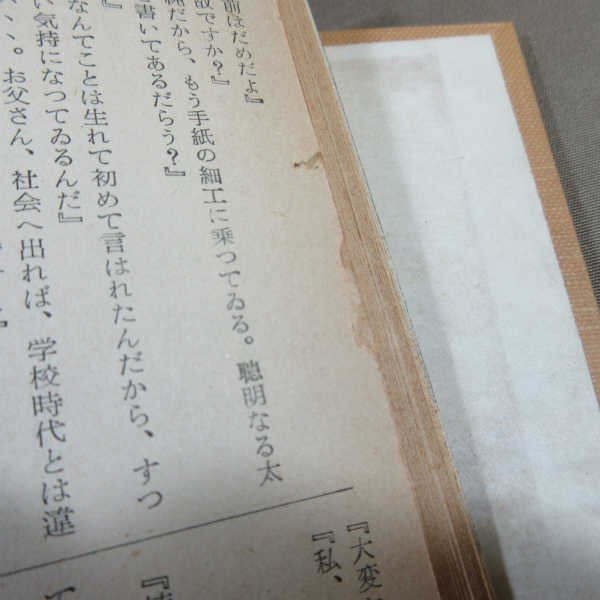 前はだめだよ』
故ですか？』
緒だから、もう手紙の細工に乗つてゐる。聰明なる太
書いてあるだらう？』
』
なんてことは生れて初めて言はれたんだから、すつ
い気持になつてゐるんだ』
、、、。お父さん、社会へ出れば、学校時代とは違
『大変
『私、